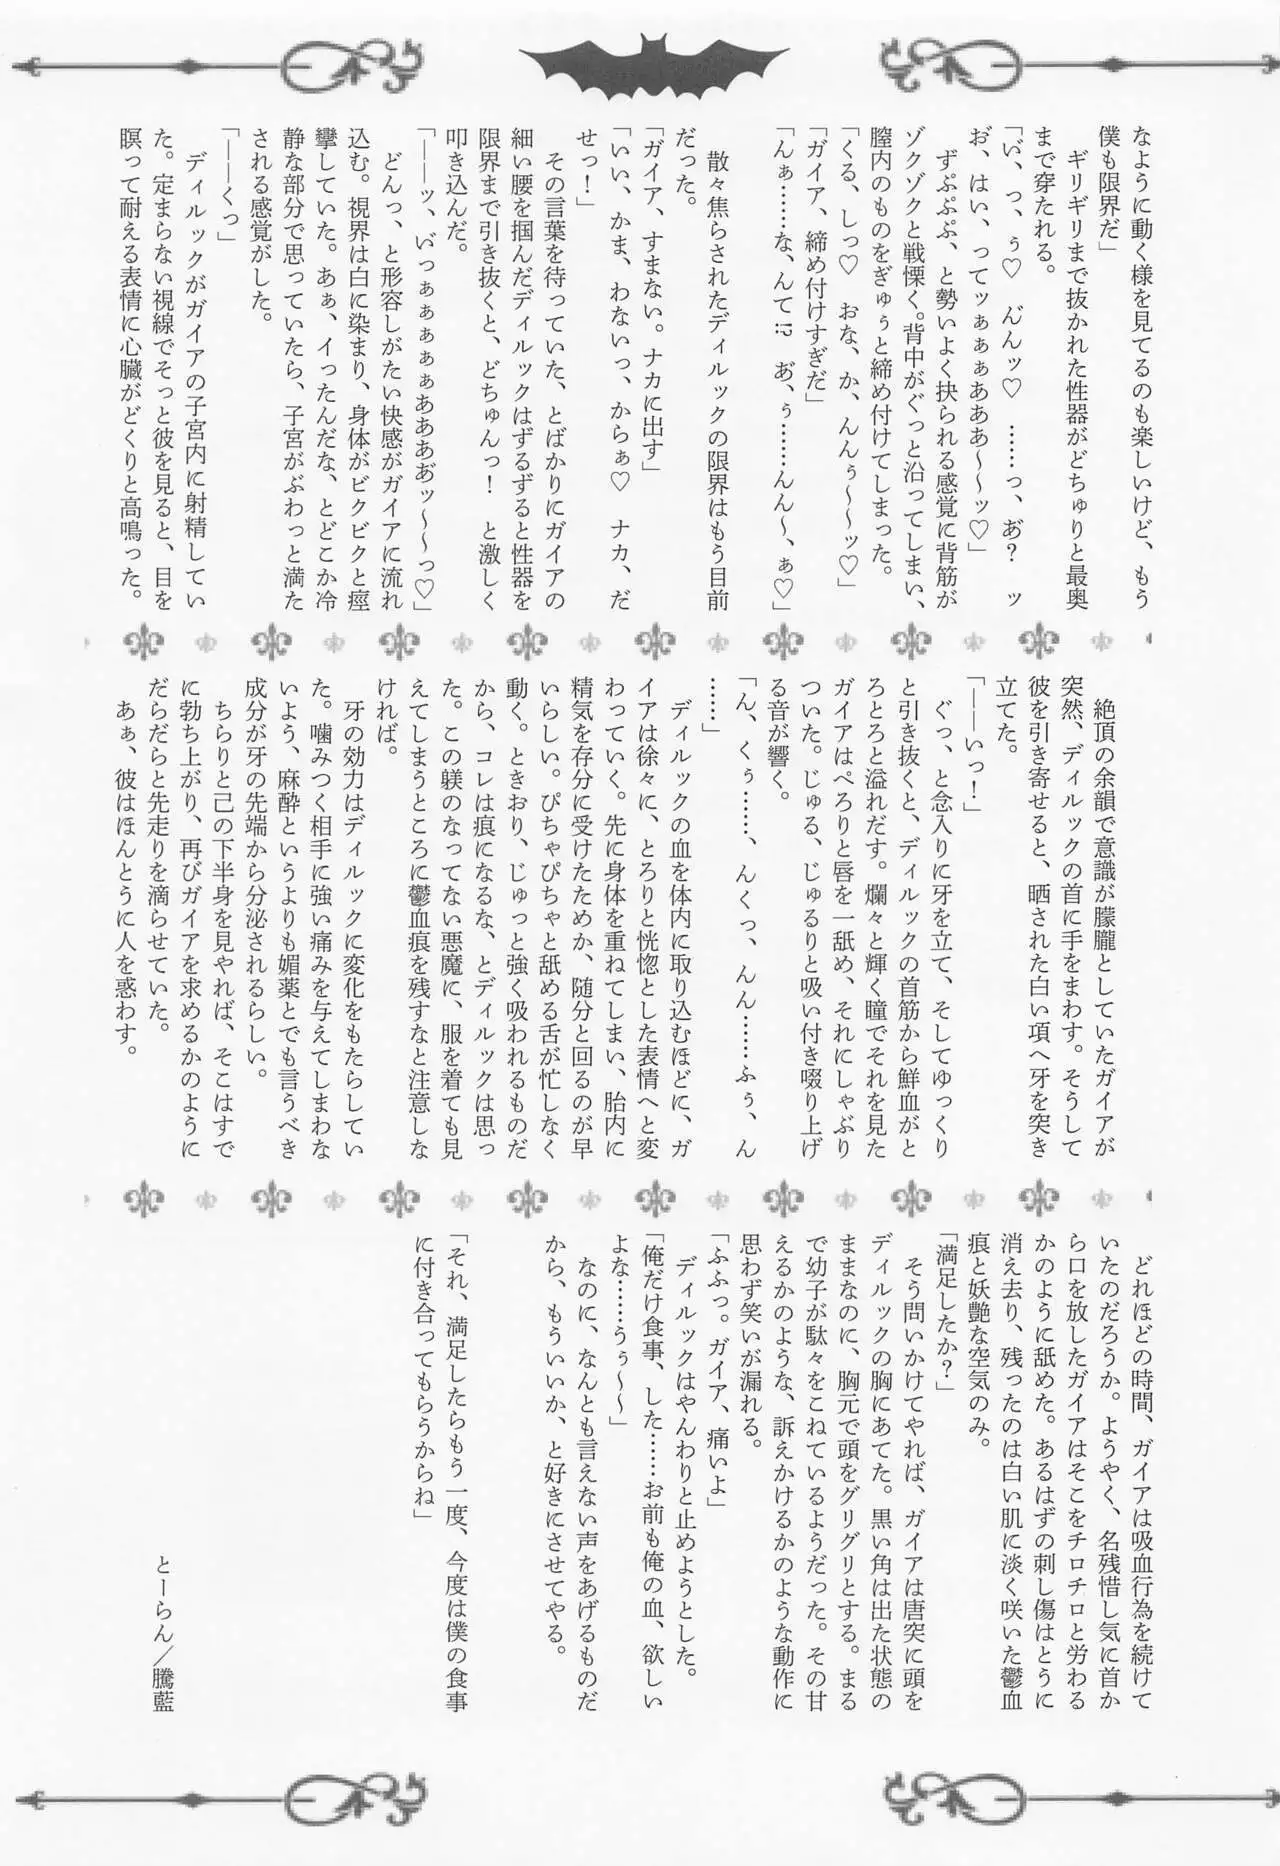 なように動く様を見てるのも楽しいけど、もう
僕も限界だ」
　ギリギリまで抜かれた性器がどちゅりと最奥
まで穿たれる。
「い゛、っ、ぅ♡　ん゛ンッ♡　……っ、あ゛？　ッ
お゛、はい、ってッぁぁぁあああ～～ッ♡」
　ずぷぷぷ、と勢いよく抉られる感覚に背筋が
ゾクゾクと戦慄く。背中がぐっと沿ってしまい、
膣内のものをぎゅぅと締め付けてしまった。
「くる、しっ♡　おな、か、んんぅ～～ッ♡」
「ガイア、締め付けすぎだ」
「んぁ……な、んて!?　あ゛、ぅ……んん～、ぁ♡」
　散々焦らされたディルックの限界はもう目前
だった。
「ガイア、すまない。ナカに出す」
「いい、かま、わないっ、からぁ♡　ナカ、だ
せっ！」
　その言葉を待っていた、とばかりにガイアの
細い腰を掴んだディルックはずるずると性器を
限界まで引き抜くと、どちゅんっ！　と激しく
叩き込んだ。
「――ッ、い゛っぁぁぁぁぁあああぢッ～～っ♡」
　どんっ、と形容しがたい快感がガイアに流れ
込む。視界は白に染まり、身体がビクビクと痙
攣していた。あぁ、イったんだな、とどこか冷
静な部分で思っていたら、子宮がぶわっと満た
される感覚がした。
「――くっ」
　ディルックがガイアの子宮内に射精してい
た。定まらない視線でそっと彼を見ると、目を
瞑って耐える表情に心臓がどくりと高鳴った。
　絶頂の余韻で意識が朦朧としていたガイアが
突然、ディルックの首に手をまわす。そうして
彼を引き寄せると、晒された白い項へ牙を突き
立てた。
「――いっ！」
　ぐっ、と念入りに牙を立て、そしてゆっくり
と引き抜くと、ディルックの首筋から鮮血がと
ろとろと溢れだす。爛々と輝く瞳でそれを見た
ガイアはぺろりと唇を一舐め、それにしゃぶり
ついた。じゅる、じゅるりと吸い付き啜り上げ
る音が響く。
「ん、くぅ……、んくっ、んん……ふぅ、ん
……」
　ディルックの血を体内に取り込むほどに、ガ
イアは徐々に、とろりと恍惚とした表情へと変
わっていく。先に身体を重ねてしまい、胎内に
精気を存分に受けたためか、随分と回るのが早
いらしい。ぴちゃぴちゃと舐める舌が忙しなく
動く。ときおり、じゅっと強く吸われるものだ
から、コレは痕になるな、とディルックは思っ
た。この躾のなってない悪魔に、服を着ても見
えてしまうところに鬱血痕を残すなと注意しな
ければ。
　牙の効力はディルックに変化をもたらしてい
た。噛みつく相手に強い痛みを与えてしまわな
いよう、麻酔というよりも媚薬とでも言うべき
成分が牙の先端から分泌されるらしい。
　ちらりと己の下半身を見やれば、そこはすで
に勃ち上がり、再びガイアを求めるかのように
だらだらと先走りを滴らせていた。
　あぁ、彼はほんとうに人を惑わす。
　どれほどの時間、ガイアは吸血行為を続けて
いたのだろうか。ようやく、名残惜し気に首か
ら口を放したガイアはそこをチロチロと労わる
かのように舐めた。あるはずの刺し傷はとうに
消え去り、残ったのは白い肌に淡く咲いた鬱血
痕と妖艶な空気のみ。
「満足したか？」
　そう問いかけてやれば、ガイアは唐突に頭を
ディルックの胸にあてた。黒い角は出た状態の
ままなのに、胸元で頭をグリグリとする。まる
で幼子が駄々をこねているようだった。その甘
えるかのような、訴えかけるかのような動作に
思わず笑いが漏れる。
「ふふっ。ガイア、痛いよ」
　ディルックはやんわりと止めようとした。
「俺だけ食事、した……お前も俺の血、欲しい
よな……うぅ～～」
　なのに、なんとも言えない声をあげるものだ
から、もういいか、と好きにさせてやる。
「それ、満足したらもう一度、今度は僕の食事
に付き合ってもらうからね」
とーらん／騰藍